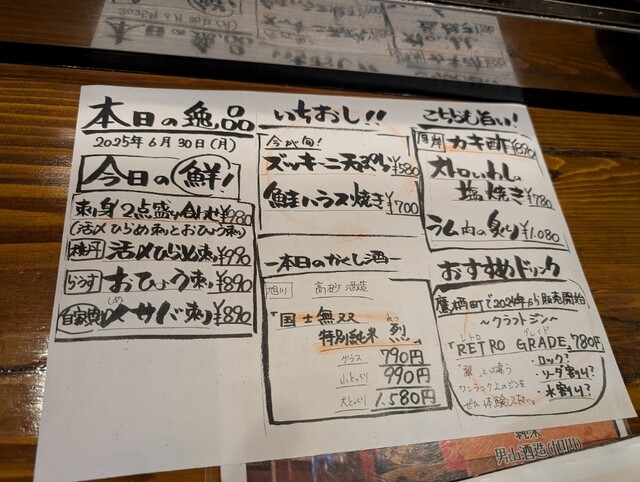 本日の逸品
2025年6月30日(月)
今日の鮮!
刺身2点盛り合わせ ¥980
(活〆ひらめ刺とおひょう刺)
活〆ひらめ刺 ¥990
らうす おひょう刺 ¥890
自家製 〆サバ刺 ¥890
しめ
いちおし!!
今が旬!
ズッキーニ天ぷら ¥580
鮭ハラス焼き ¥700
ー本日のかくし酒ー
旭川 高砂酒造
「国士無双
特別純米 烈」
れつ
グラス 790円
小とっくり 990円
大とっくり 1,580円
こちらも旨い!
厚岸 カキ酢 ¥890
オトロいわしの
塩焼き ¥780
ラム肉の炙り ¥1,080
おすすめドリンク
鷹栖町で2024年から販売開始
~クラフトジン~
レトロ グレイド
「RETRO GRADE」780円
・ロック?
・ソーダ割り?
・水割り?
とは違う
ワンランク上のジンを
ぜひ体験して下さい。
純米
男山酒造(旭川)